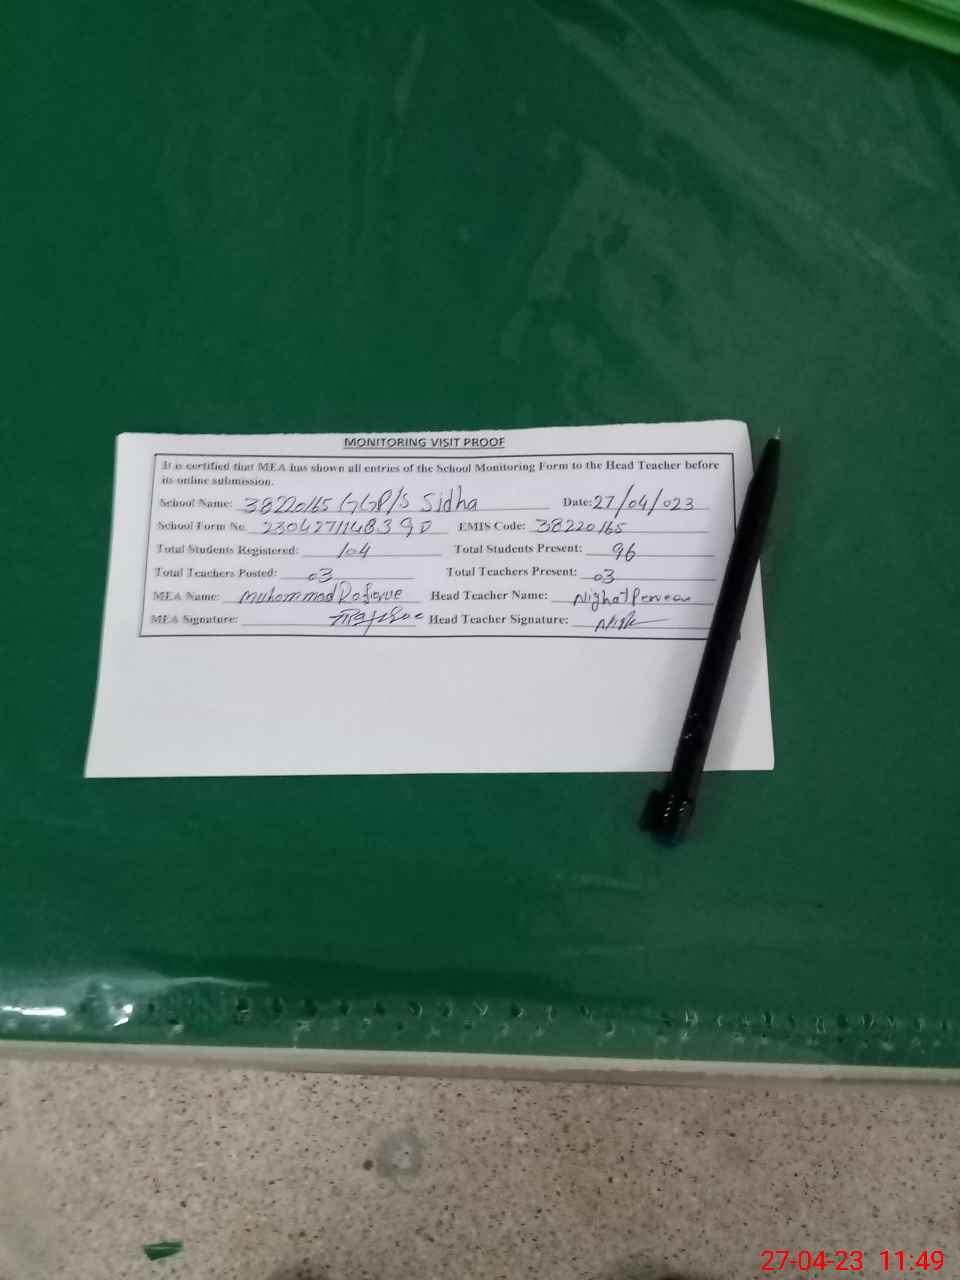 MONITORING VISIT PROOF
It is certified that MEA has shown all entries of the School Monitoring Form to the Head Teacher before
its online submission.
School Name: 38220165 GGP/S Sidha Date: 27/04/023
School Form No. EMIS Code: 38220165
Total Students Registered: 104 Total Students Present: 96
Total Teachers Posted: 03 Total Teachers Present: 03
MEA Name: Muhammad Rafique Head Teacher Name: Nighat Perveen
MEA Signature: Head Teacher Signature:
27-04-23 11:49